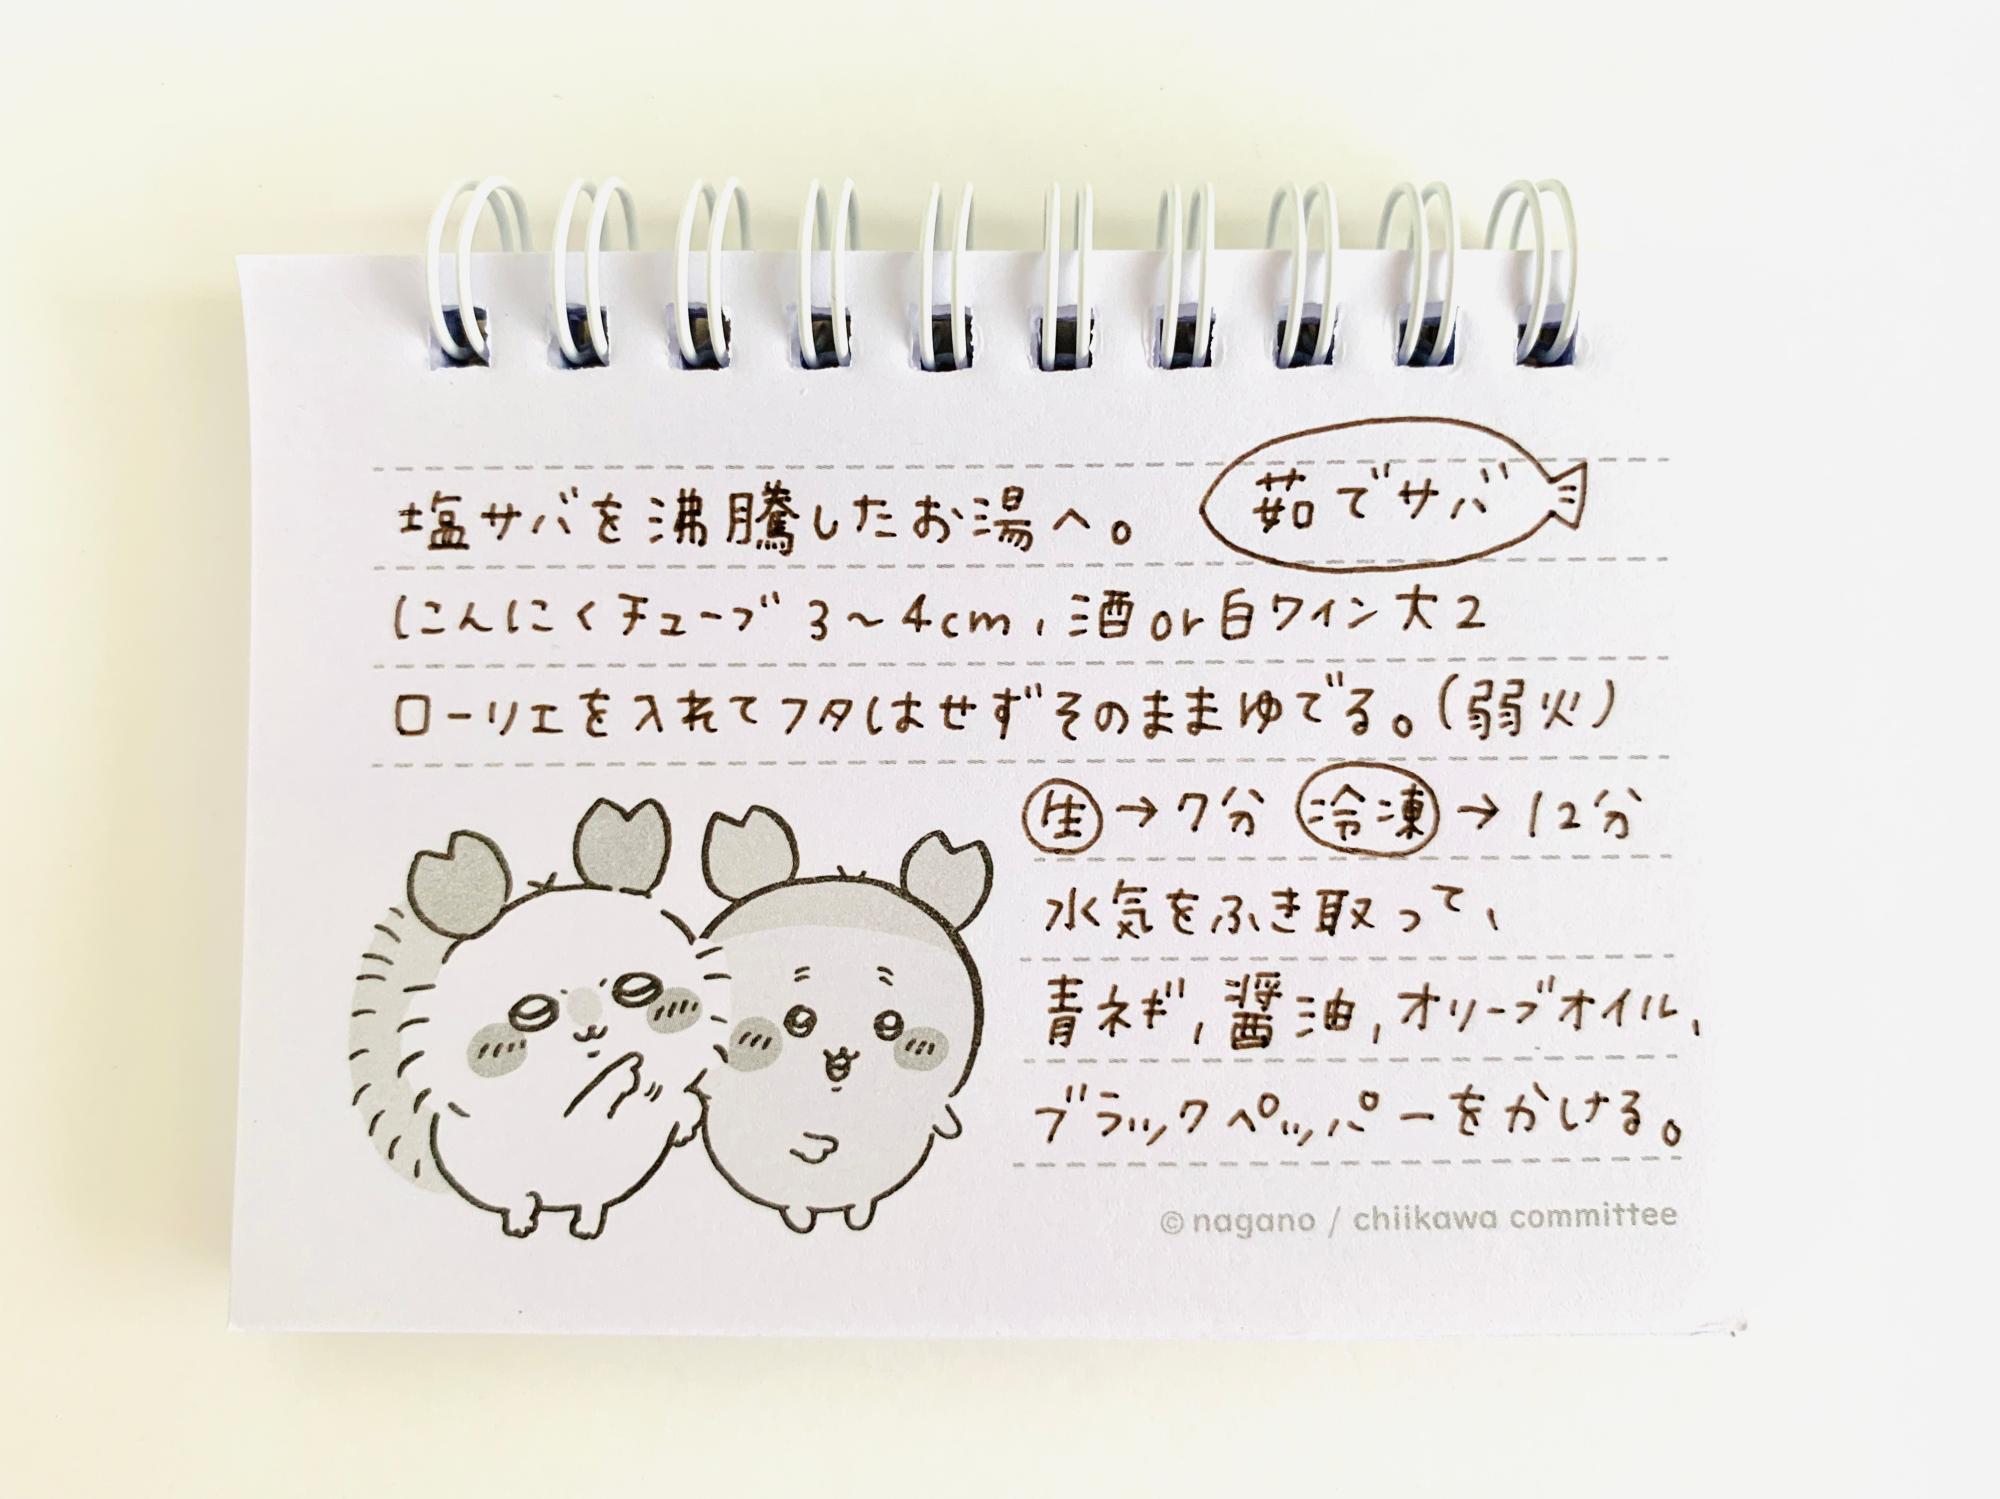 茹でサバ
塩サバを沸騰したお湯へ。
にんにくチューブ 3〜4cm、酒or白ワイン大2
ローリエを入れてフタはせずそのままゆでる。(弱火)
生→7分 冷凍→12分
水気をふき取って、
青ネギ、醤油、オリーブオイル、
ブラックペッパーをかける。
©nagano / chiikawa committee